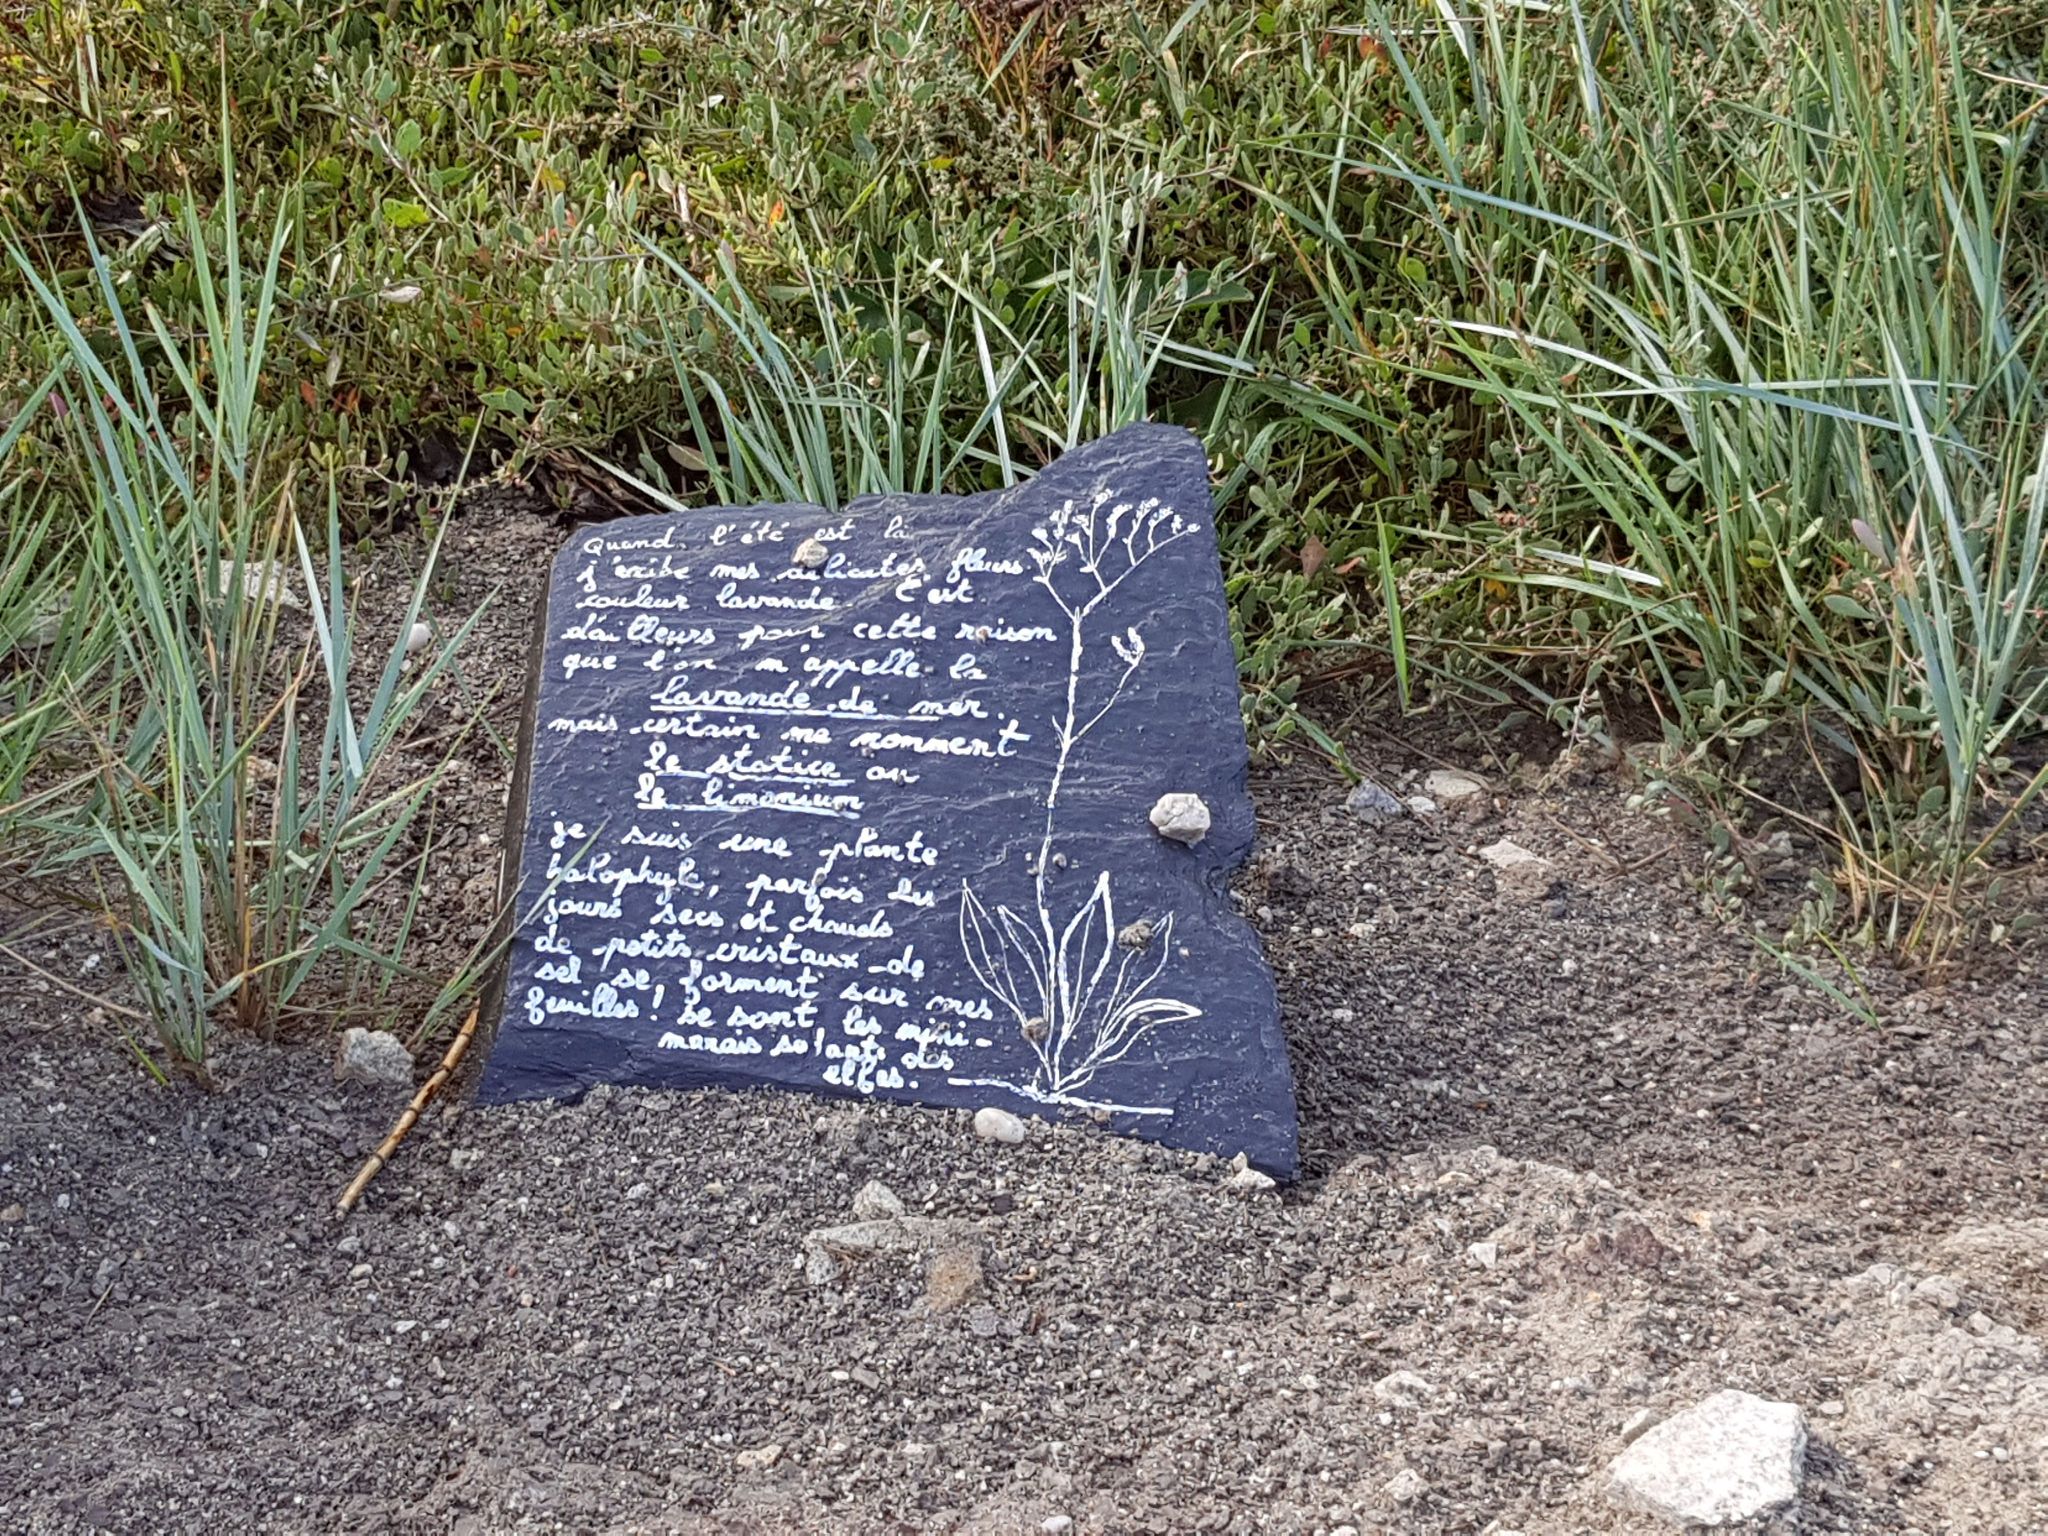 Quand l'été est la
j'exibe mes délicates fleurs
couleur lavande. C'est
d'ailleurs pour cette raison
que l'on m'appelle la
lavande de mer.
mais certain me nomment
le statice ou
le limonium
je suis une plante
halophyle, parfois les
jours secs et chauds
de petits cristaux de
sel se forment sur mes
feuilles! Se sont les mini-
marais salants des
elfes.